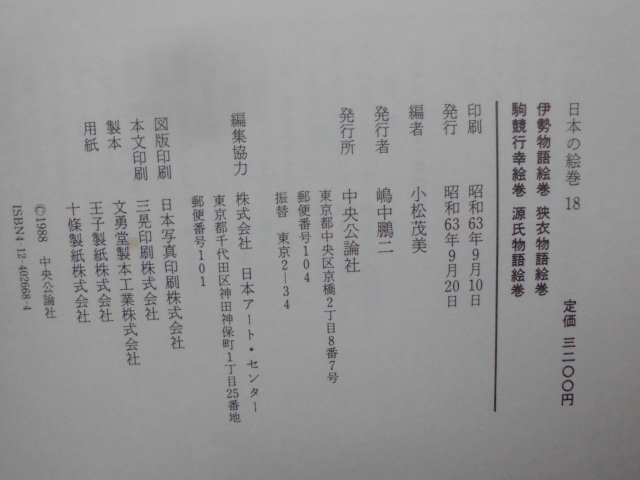 日本の絵巻 18
伊勢物語絵巻 狭衣物語絵巻
駒競行幸絵巻 源氏物語絵巻
定価 三二〇〇円
印刷 昭和63年9月10日
発行 昭和63年9月20日
編者 小松茂美
発行者 嶋中鵬二
発行所 中央公論社
東京都中央区京橋2丁目8番7号
郵便番号104
振替 東京2―34
編集協力 株式会社 日本アート・センター
東京都千代田区神田神保町1丁目25番地
郵便番号101
図版印刷 日本写真印刷株式会社
本文印刷 三晃印刷株式会社
製本 文勇堂製本工業株式会社
用紙 王子製紙株式会社
十條製紙株式会社
©1988 中央公論社
ISBN4-12-402668-4